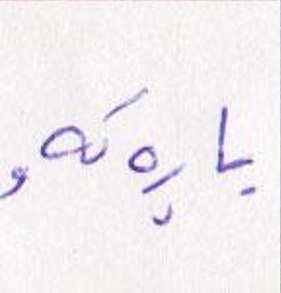 یاریەکەو